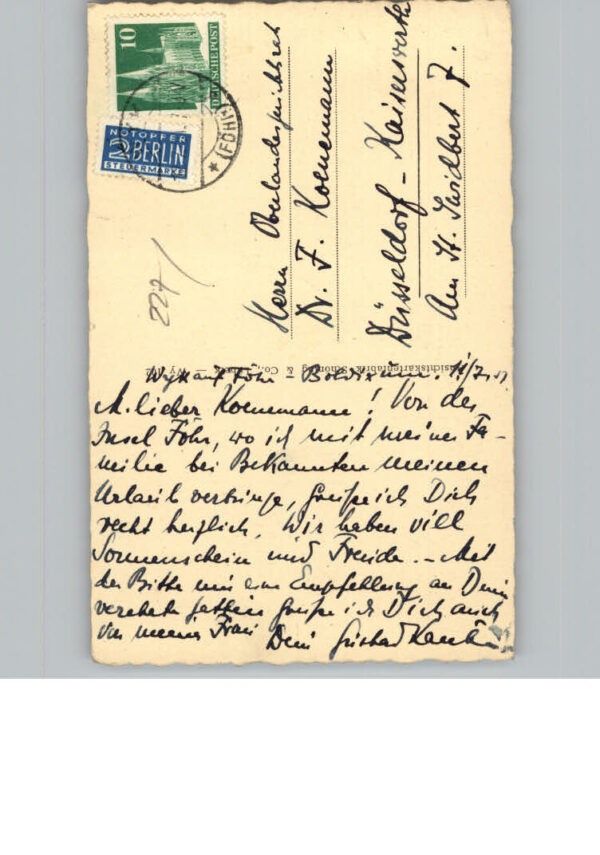 10
DEUTSCHE POST
NOTOPFER
2 BERLIN
STEUERMARKE
* (FÖHR)
227/
Herrn Oberlandesgerichtsrat
Dr. F. Koenemann
Düsseldorf - Kaiserswerth
Am St. Swidbert 7.
& Co.,
Wyk auf Föhr - Boldixum. 11/7.
M. lieber Koenemann! Von der
Insel Föhr, wo ich mit meiner Fa-
milie bei Bekannten meinen
Urlaub verbringe, grüße ich Dich
recht herzlich. Wir haben viel
Sonnenschein und Freude. - Mit
der Bitte um eine Empfehlung an Deine
verehrte Gattin grüße ich Dich auch
von meiner Frau
Dein